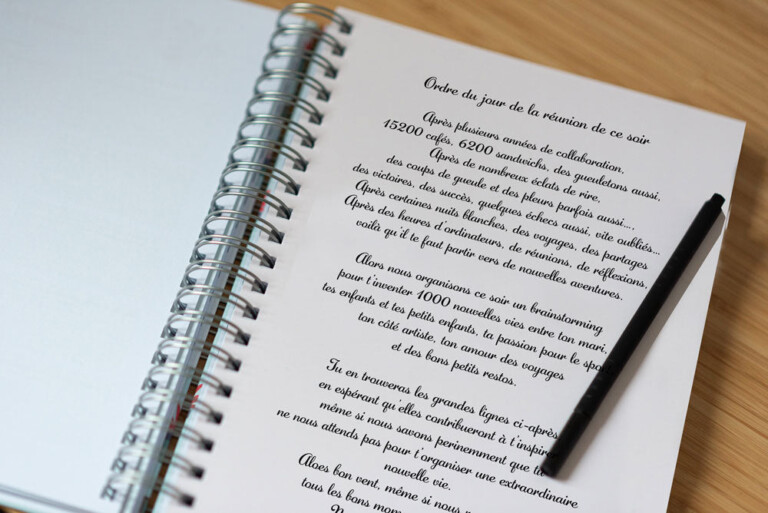 Ordre du jour de la réunion de ce soir
Après plusieurs années de collaboration,
15200 cafés, 6200 sandwichs, des gueuletons aussi,
Après de nombreux éclats de rire,
des coups de gueule et des pleurs parfois aussi....
des victoires, des succès, quelques échecs aussi, vite oubliés...
Après certaines nuits blanches, des voyages, des partages
Après des heures d'ordinateurs, de réunions, de réflexions,
voilà qu'il te faut partir vers de nouvelles aventures.
Alors nous organisons ce soir un brainstorming
pour t'inventer 1000 nouvelles vies entre ton mari,
tes enfants et tes petits enfants, ta passion pour le
ton côté artiste, ton amour des voyages
et des bons petits restos.
Tu en trouveras les grandes lignes ci-après
en espérant qu'elles contribueront à
même si nous savons perinemment que
ne nous attends pas pour t'organiser une extraordinaire
nouvelle vie.
Aloes bon vent, même si nous
tous les bons